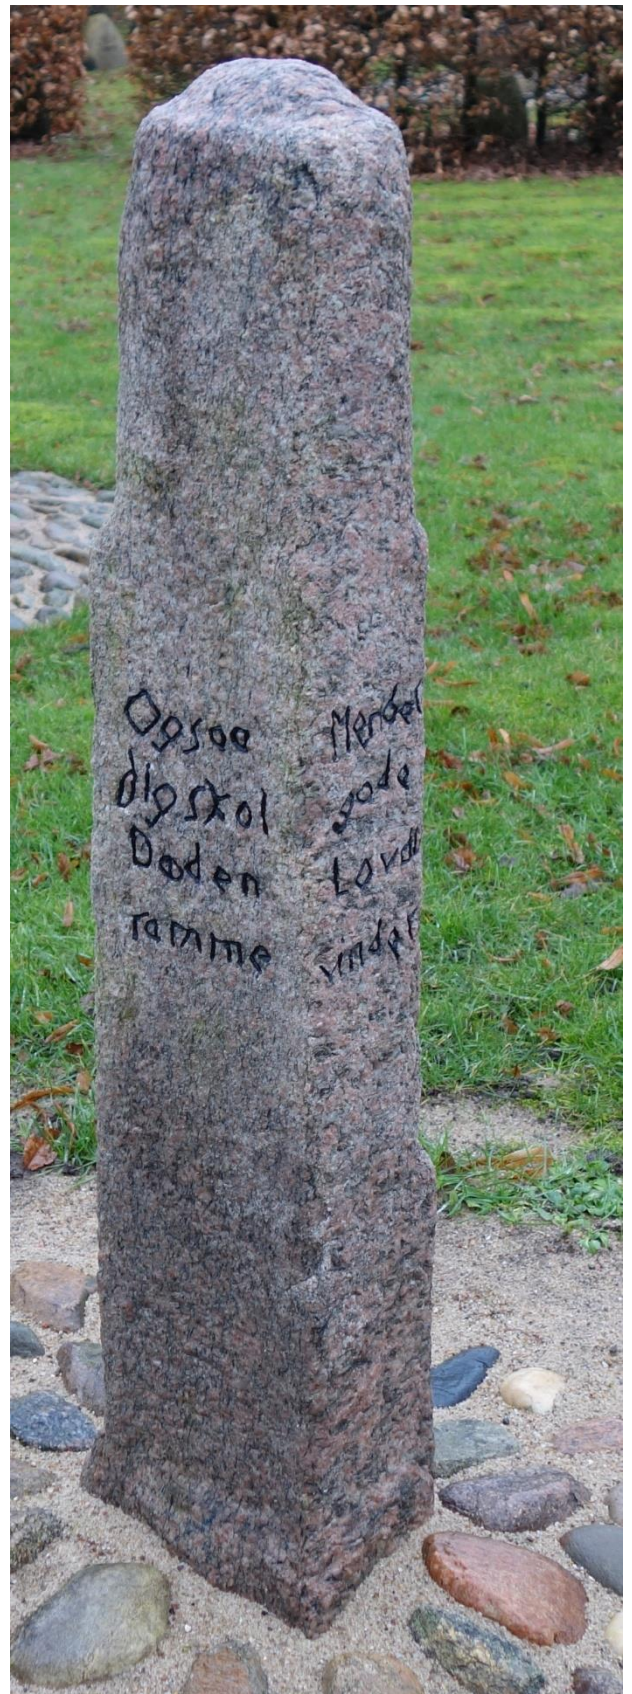 Ogsaa
dig skal
Døden
ramme
Men
gode
Lov
vinder